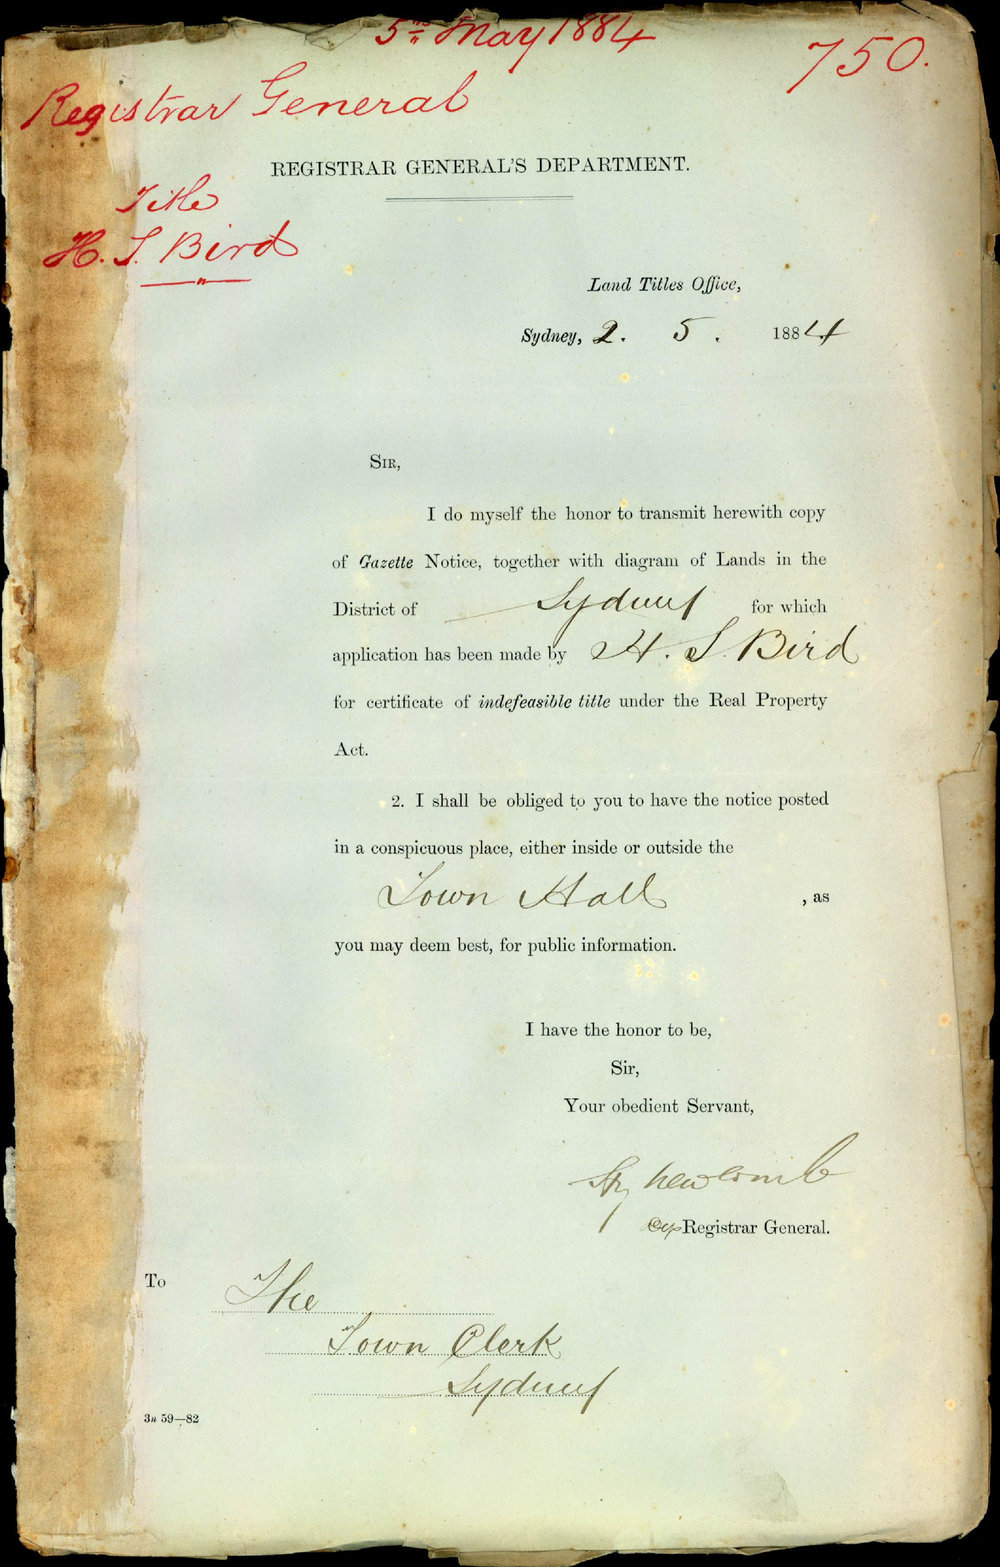 5th May 1884
750.
Registrar General
REGISTRAR GENERAL'S DEPARTMENT.
Title
H. S. Bird
Land Titles Office,
Sydney, 2. 5. 1884
SIR,
I do myself the honor to transmit herewith copy
of Gazette Notice, together with diagram of Lands in the
District of Sydney for which
application has been made by H. S. Bird
for certificate of indefeasible title under the Real Property
Act.
2. I shall be obliged to you to have the notice posted
in a conspicuous place, either inside or outside the
Town Hall , as
you may deem best, for public information.
I have the honor to be,
Sir,
Your obedient Servant,
Newcomb
Dep Registrar General.
To The
Town Clerk
Sydney
3a 59—82